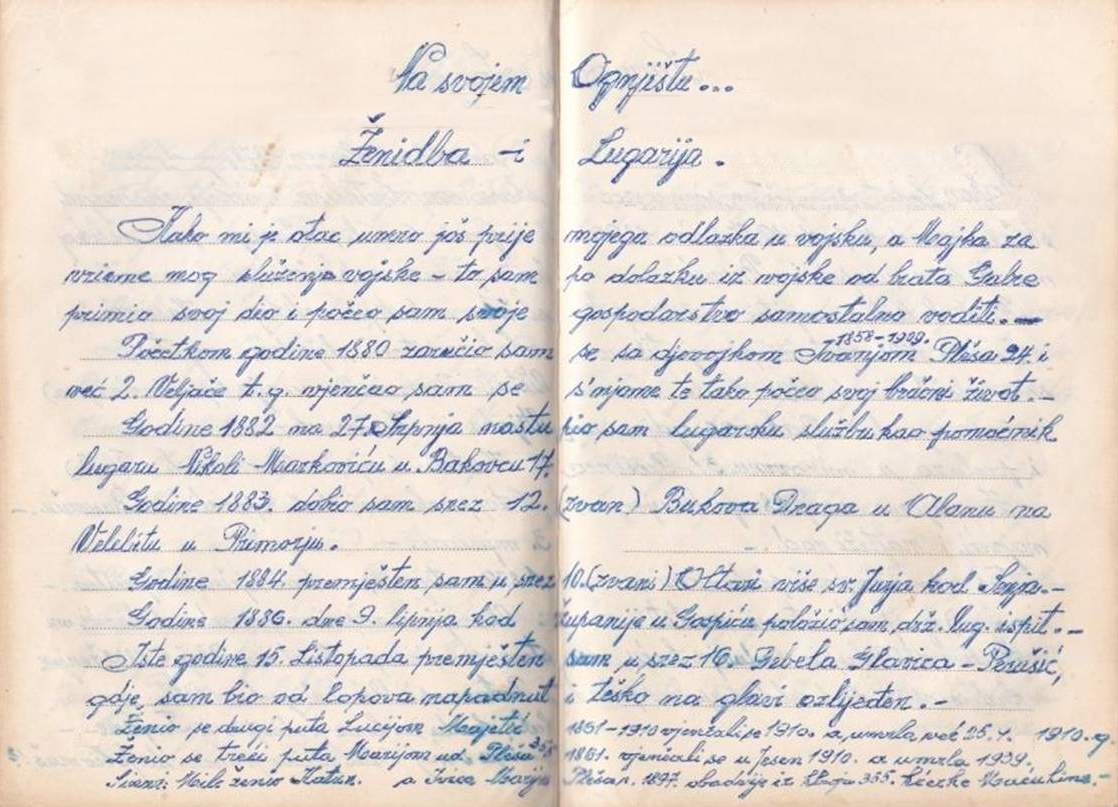 Na svojem Ognjištu...
Ženidba - i Lugarija.
Kako mi je otac umro još prije mojega odlazka u vojsku, a Majka za
vrieme mog služenja vojske - to sam po dolazku iz vojske od brata Gabre
primio svoj dio i počeo sam svoje gospodarstvo samostalno voditi. -
Početkom godine 1880 zaručio sam se sa djevojkom Ivanjom 1858-1909. Pleša 24. i
već 2. Veljače t. g. vjenčao sam se s'njome te tako počeo svoj bračni život. -
Godine 1882 na 27. Srpnja nastupio sam lugarsku službu kao pomoćnik
lugaru Nikoli Markoviću u Bakovcu 17.
Godine 1883. dobio sam srez 12. (zvan) Bukova Draga u Alanu na
Velebitu u Primorju.
Godine 1884. premješten sam u srez 10. (zvani) Oltari više sv. Jurja kod Senja. -
Godine 1886. dne 9. lipnja kod županije u Gospiću položio sam drž. lug. ispit. -
Iste godine 15. Listopada premješten sam u srez 16. Debela Glavica - Perušić,
gdje sam bio od lopova napadnut i teško na glavi ozlijeđen. -
Ženio se drugi puta Lucijom Majetić 1861-1910 vjenčali se 1910. a umrla već 25. 1. 1910. g
Ženio se treći puta Marijom ud. Pleša 355 1861. vjenčali se u Jesen 1910. a umrla 1939.
ženio a Ivica Marijom Pleša r. 1897. obadvije iz 355. kćerke